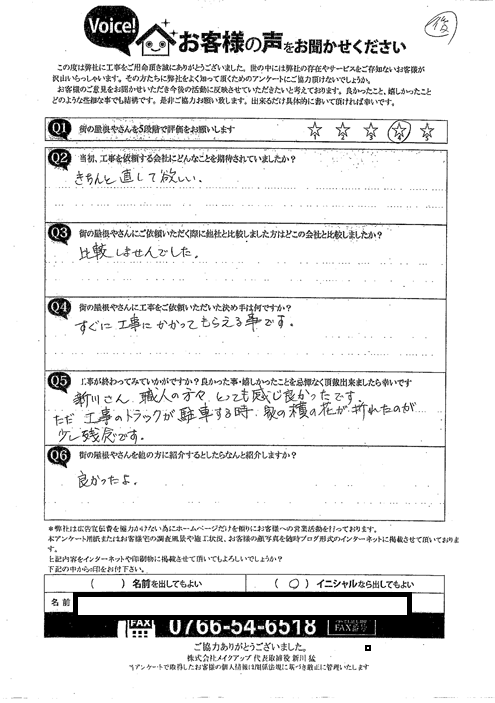 Voice!
お客様の声をお聞かせください
この度は弊社に工事をご用命頂き誠にありがとうございました。世の中には弊社の存在やサービスをご存知ないお客様が
沢山いらっしゃいます。その方たちに弊社をよく知って頂くためのアンケートにご協力頂けないでしょうか。
お客様のご意見をお聞かせいただき今後の活動に反映させていただきたいと考えております。良かったこと、嬉しかったこと
どのような些細な事でも結構です。是非ご協力お願い致します。出来るだけ具体的に書いて頂ければ幸いです。
Q1 街の屋根やさんを5段階で評価をお願いします 1 2 3 4 5
Q2 当初、工事を依頼する会社にどんなことを期待されていましたか?
きちんと直して欲しい.
Q3 街の屋根やさんにご依頼いただく際に他社と比較しました方はどこの会社と比較しましたか?
比較しませんでした.
Q4 街の屋根やさんに工事をご依頼いただいた決め手は何ですか?
すぐに工事にかかってもらえる事です.
Q5 工事が終わってみていかがですか?良かった事・嬉しかったことを忌憚なく頂戴出来ましたら幸いです
新川さん、職人の方々、とっても感じ良かったです
ただ 工事のトラックが駐車する時、家の横の花が折れたのが
少し残念です.
Q6 街の屋根やさんを他の方に紹介するとしたらなんと紹介しますか?
良かったよ.
*弊社は広告宣伝費を極力かけない為にホームページだけを頼りにお客様への営業活動を行っております。
本アンケート用紙またはお客様宅の調査風景や施工状況、お客様の顔写真を随時ブログ形式のインターネットに掲載させて頂いております。
上記内容をインターネットや印刷物に掲載させて頂いてもよろしいでしょうか?
下記の中から○印をお付下さい。
( ) 名前を出してもよい ( ○ ) イニシャルなら出してもよい
名前
FAX 0766-54-6518 FAX番号
ご協力ありがとうございました。
株式会社メイクアップ 代表取締役 新川 猛
*アンケートで取得したお客様の個人情報は関係法規に基づき厳正に管理いたします